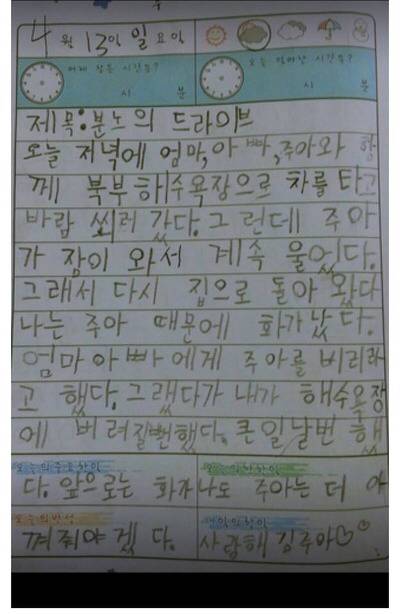 4월 13일 일요일
어제 잠든 시간은? 오늘 일어난 시간은?
시 분 시 분
제목:분노의 드라이브
오늘 저녁에 엄마,아빠,주아와 함
께 북부해수욕장으로 차를 타고
바람 쐬러 갔다.그런데 주아
가 잠이 와서 계속 울었다.
그래서 다시 집으로 돌아 왔다
나는 주아 때문에 화가났다.
엄마아빠에게 주아를 버리라
고 했다.그랬다가 내가 해수욕장
에 버려질뻔했다.큰일날번 했
오늘의 중요한일 오늘의 착한일
다.앞으로는 화자나도 주아는 더 아
오늘의 반성 내일의 할일
껴줘야겠다. 사랑해 김주아♡